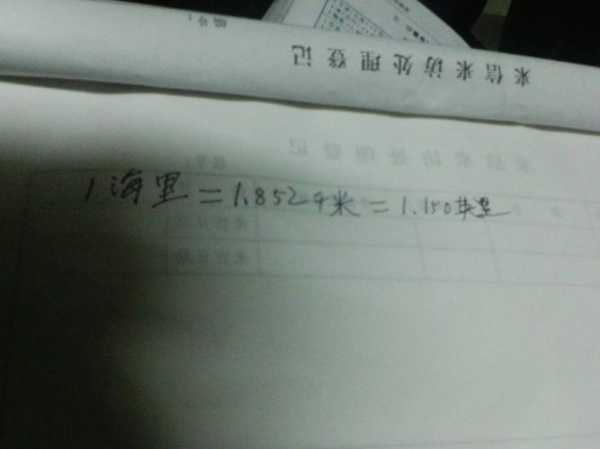 编号：
来信来访处理登记
1海里=1.852千米=1.150英里